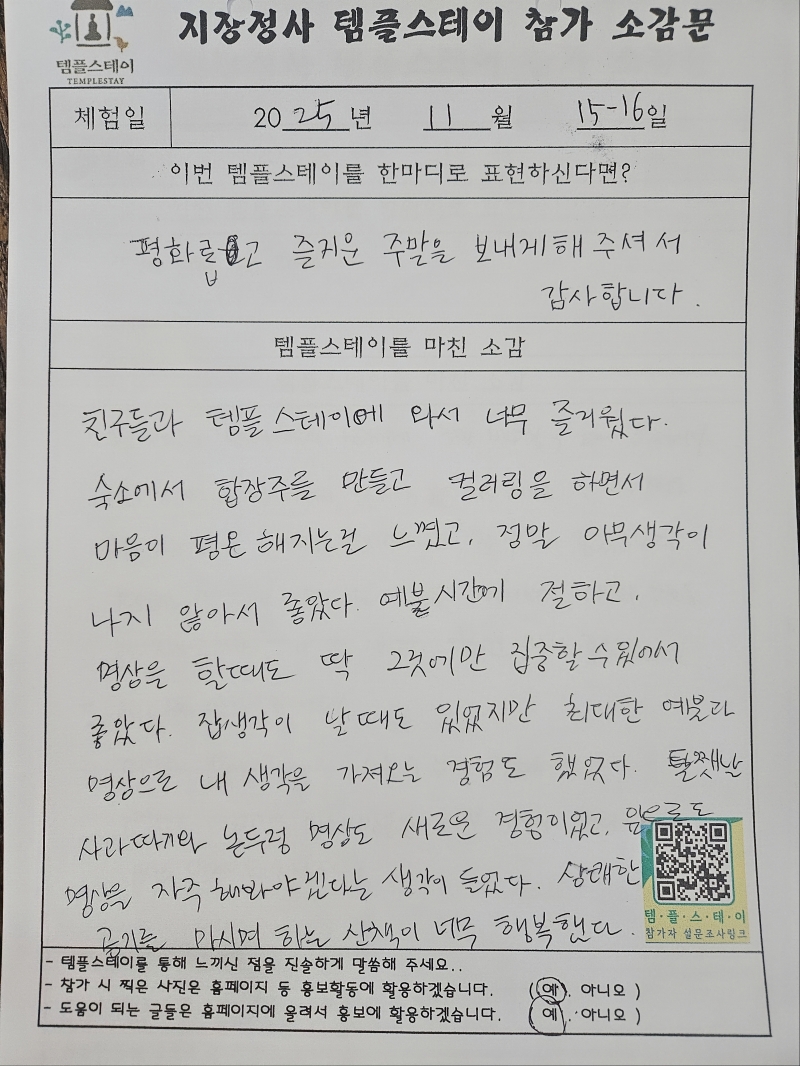 지장정사 템플스테이 참가 소감문
템플스테이
TEMPLESTAY
체험일 2025년 11월 15-16일
이번 템플스테이를 한마디로 표현하신다면?
평화롭고 즐거운 주말을 보내게해 주셔서
감사합니다.
템플스테이를 마친 소감
친구들과 템플스테이에 와서 너무 즐거웠다.
숙소에서 합장주를 만들고 컬러링을 하면서
마음이 평온해지는걸 느꼈고, 정말 아무생각이
나지 않아서 좋았다. 예불시간에 절하고,
명상을 할때도 딱 그것에만 집중할 수 있어서
좋았다. 잡생각이 날때도 있었지만 최대한 예불과
명상으로 내 생각을 가져오는 경험도 했었다. 둘쨋날
사과따기와 논두렁 명상도 새로운 경험이었고, 앞으로도
명상을 자주 해봐야겠다는 생각이 들었다. 상쾌한
공기를 마시며 하는 산책이 너무 행복했다.
템·플·스·테·이
참가자 설문조사링크
- 템플스테이를 통해 느끼신 점을 진솔하게 말씀해 주세요..
- 참가 시 찍은 사진은 홈페이지 등 홍보활동에 활용하겠습니다. (예, 아니오 )
- 도움이 되는 글들은 홈페이지에 올려서 홍보에 활용하겠습니다. (예, 아니오 )